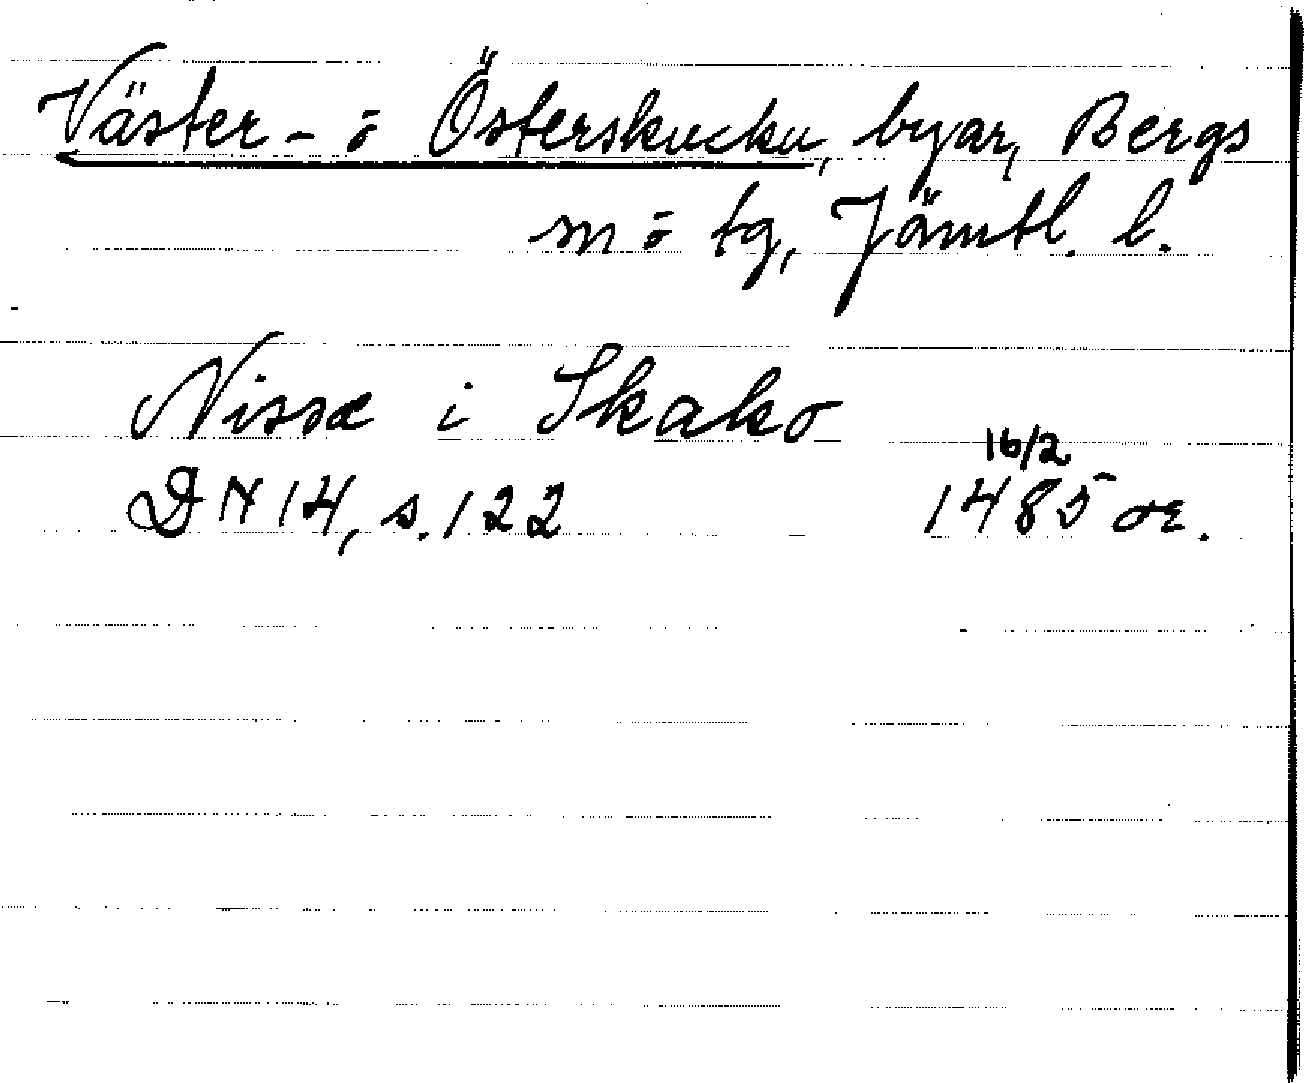 Väster- o Österskucku, byar, Bergs
sn o tg, Jämtl. l.
Nisse i Skako
16/2
DN 14, s. 122 1485 or.